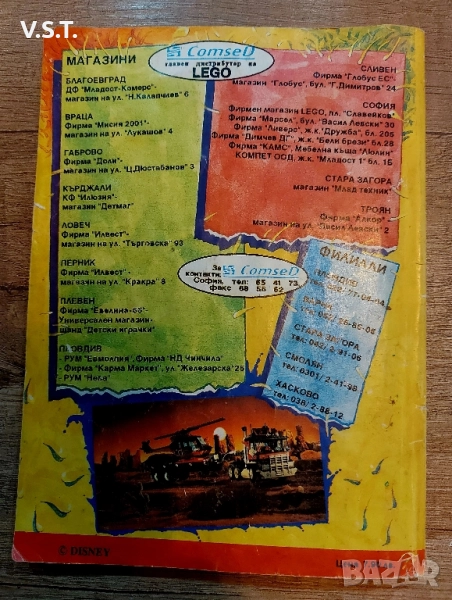 V.S.T.
ComseD
главен дистрибутор на
LEGO
МАГАЗИНИ
БЛАГОЕВГРАД
ДФ "Младост-Комерс"-
магазин на ул. "Н.Калапчиев" 6
ВРАЦА
Фирма "Мисия 2001"-
магазин на ул. "Лукашов" 4
ГАБРОВО
Фирма "Доли"-
магазин на ул. "Ц.Дюстабанов" 3
КЪРДЖАЛИ
КФ "Илюзия"-
магазин "Детмаг"
ЛОВЕЧ
Фирма "Илвест"-
магазин на ул. "Търговска" 93
ПЕРНИК
Фирма "Илвест"-
магазин на ул. "Кракра" 8
ПЛЕВЕН
Фирма "Евелина-66"-
Универсален магазин-
щанд "Детски играчки"
ПЛОВДИВ
- РУМ "Евмолпия", Фирма "НД Чинчила"
- Фирма "Карма Маркет", ул. "Железарска" 25
- РУМ "Нела"
СЛИВЕН
Фирма "Глобус ЕС"-
магазин "Глобус", бул. "Г.Димитров" 24
СОФИЯ
Фирмен магазин LEGO, пл. "Славейков"
Фирма "Марсел", бул. "Васил Левски" 30
Фирма "Ливерс", ж.к. "Дружба", бл. 205
Фирма "Димчев ДГ", ж.к. "Бели брези", бл. 28
Фирма "КАМС", Мебелна къща "Люлин"
КОМПЕТ ООД, ж.к. "Младост 1" бл. 15
СТАРА ЗАГОРА
магазин "Млад техник"
ТРОЯН
Фирма "Алкор"-
магазин на ул. "Васил Левски" 2
За
контакти: ComseD
София, тел: 65 41 73,
факс 68 58 62
ФИЛИАЛИ
ПЛОВДИВ
ВАРНА
СТАРА ЗАГОРА
СМОЛЯН
тел: 0301/ 2-41-98
ХАСКОВО
тел: 038/ 2-86-12
© DISNEY
BAZAR